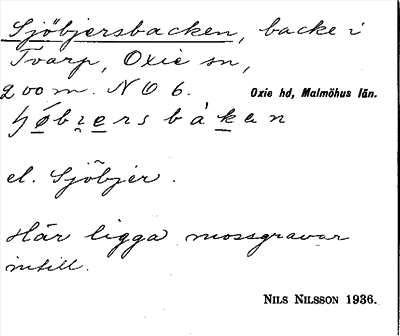 Sjöbjersbacken, backe i
Tvarp, Oxie sn,
200 m. NO 6.
Oxie hd, Malmöhus län.
el. Sjöbjer.
Här ligga mossgravar
intill.
NILS NILSSON 1936.